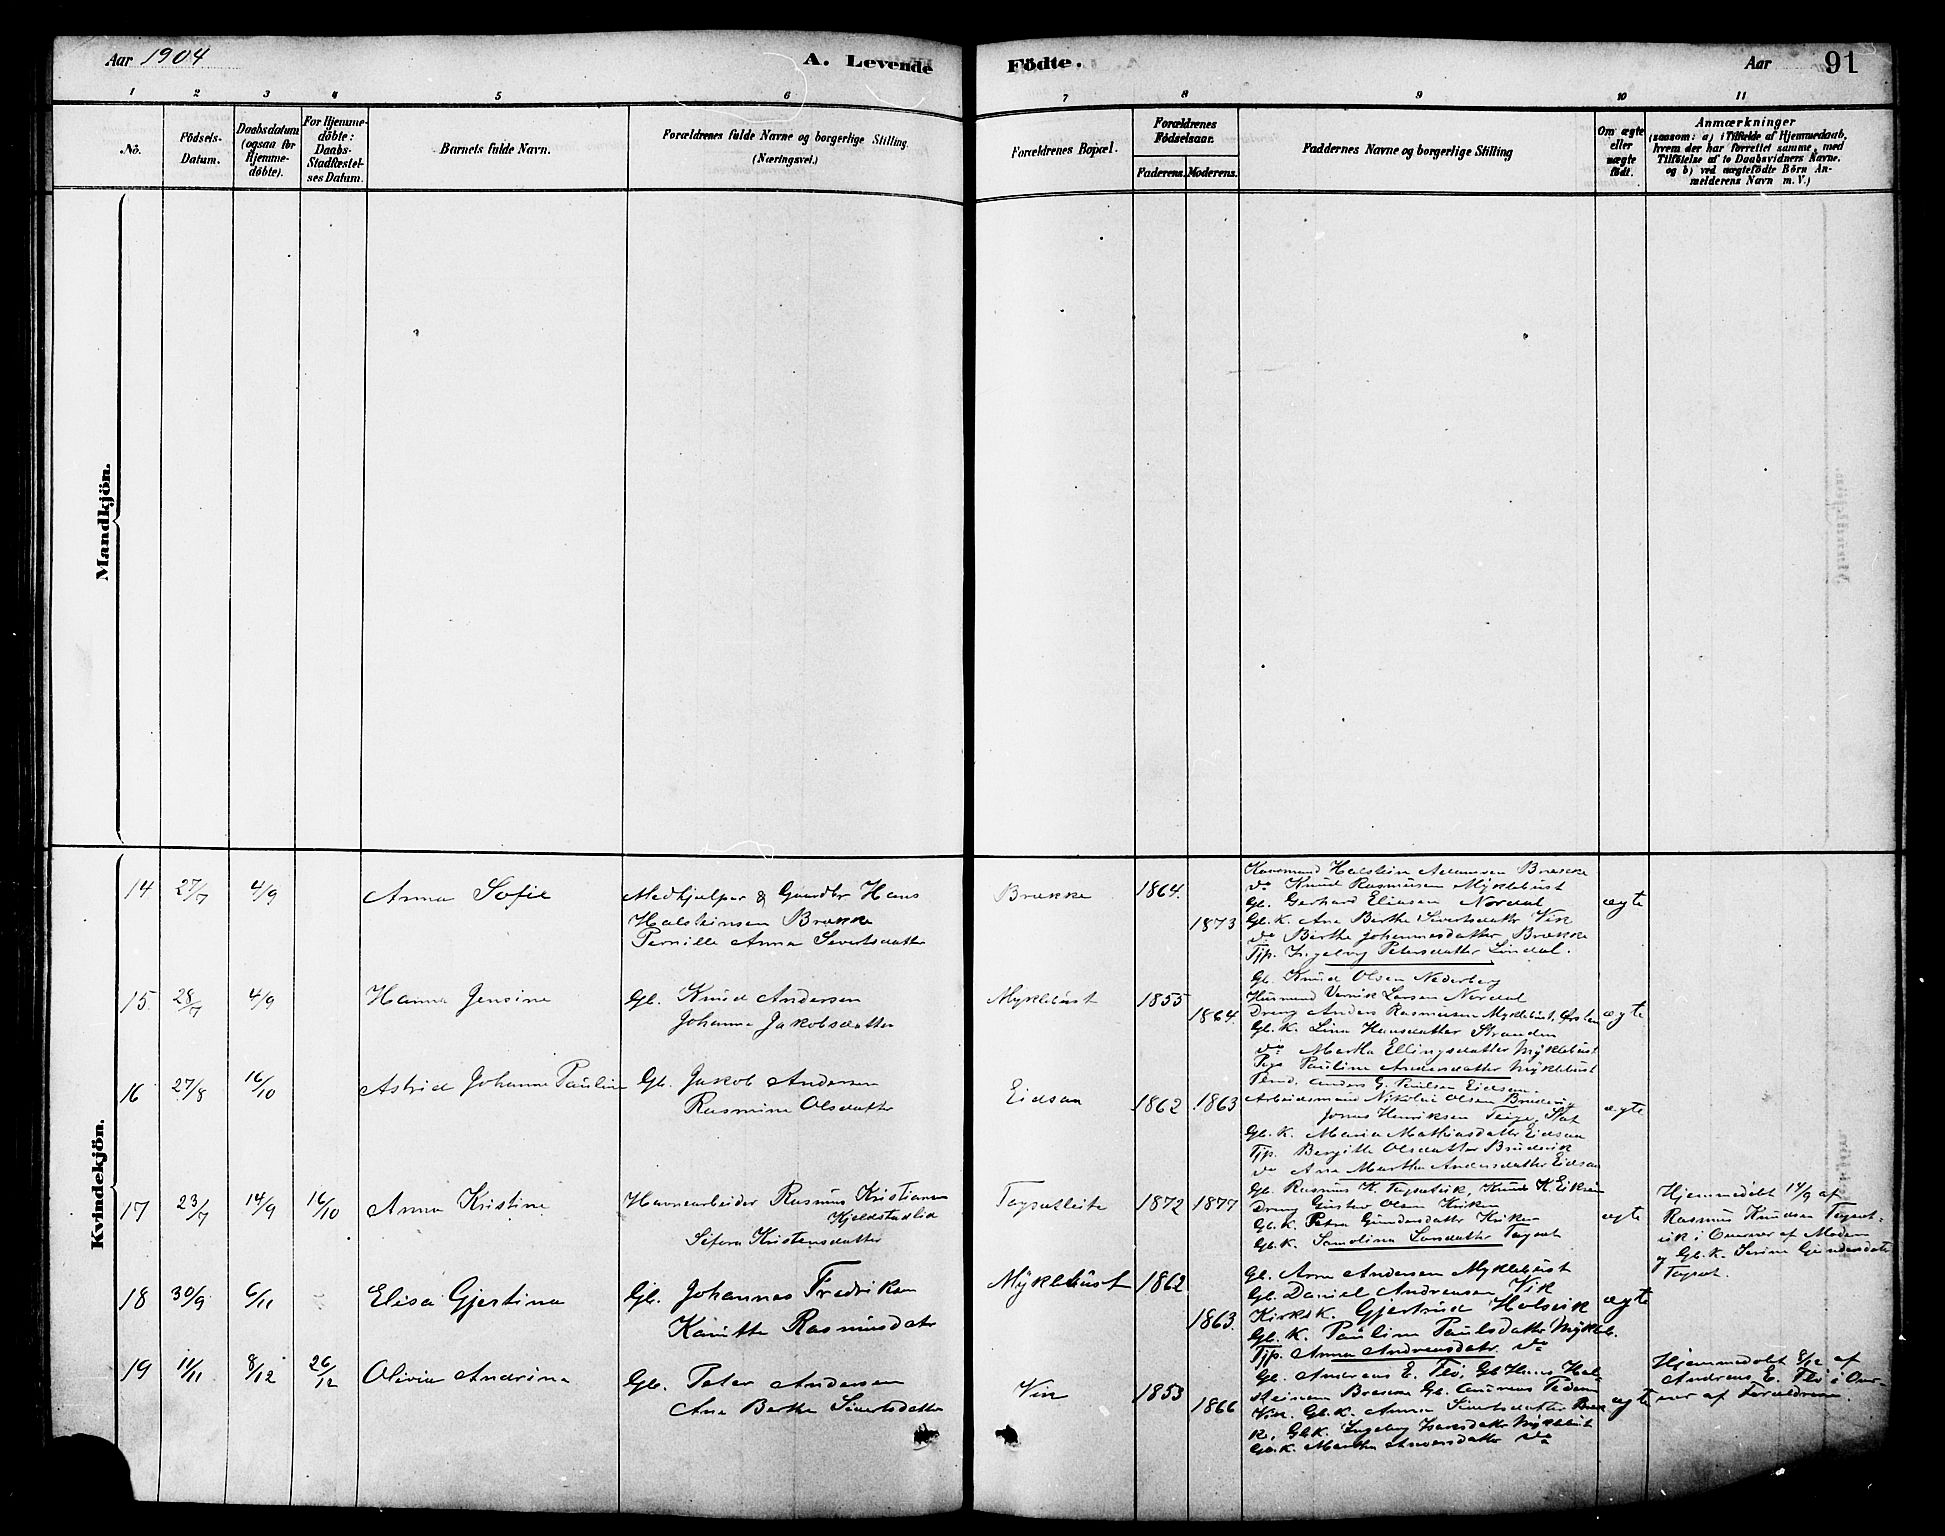 Aar 1904 A. Levende Födte. Aar 91
1 2 3 4 5 6 7 8 9 10 11
Nô.
Födsels-
Datum.
Daabsdatum
(ogsaa for
Hjemme-
döbte).
For Hjemme-
döbte:
Daabs-
Stadfæstel-
ses Datum.
Barnets fulde Navn.
Forældrenes fulde Navne og borgerlige Stilling
(Næringsvei.)
Forældrenes Bopæl.
Forældrenes
Födselsaar.
Faderens. Moderens.
Faddernes Navne og borgerlige Stilling
Om ægte
eller
uægte
födt.
Anmærkninger
(saasom: a) i Tilfælde af Hjemmedaab,
hvem der har forrettet samme, med
Tilföielse af to Daabsvidners Navne.
og b) ved uægtefödte Börn An-
melderens Navn m. V.)
Mandkjön.
Kvindekjön.
14 27/7 4/9 Anna Sofie
Medhjælper & Gaardbr Hans
Halsteinsen Brække
Pernille Anna Sivertsdatter
Brække 1864. 1873
Halstein Brække
do Knud Rasmusen Myklebust
Gb. Gerhard Eliasen Nordal
Gb. K. Ane Berthe Sivertsdatter Vik
do Berthe Johannesdatter Brække
Tjp. Ingeborg Petersdatter Lindal.
ægte
15 28/7 4/9 Hanna Jensine
Gb. Knud Andersen
Johanne Jakobsdatter
Myklebust 1855 1864.
Gb. Knud Olsen Nederberg
Husmand Larsen Nordal
Dreng Anders Rasmusen Myklebust, Ørsten
Gb. K. Lina Hansdatter Stranden
do Martha Ellingsdatter Myklebust
Pige Pauline Andersdatter Myklebust
ægte
16 27/8 16/10 Astrid Johanne Pauline
Gb. Jakob Andersen
Rasmine Olsdatter
Eidsaa 1862 1863
Anders G. Paulsen Eidsaa.
Arbeidsmand Nikolai Olsen
Jonas Henriksen Teige, Stat
Gb. K. Maria Mathiasdatter Eidsaa
Tjp. Bergitte Olsdatter
do Ane Martha Andersdatter Eidsaa
ægte
17 23/7 14/9 16/10 Anna Kristine
Havnearbeider Rasmus Kristiansen
Kjeldstadlid
Sefora Kristensdatter
1872 1877
Gb. Rasmus K. Knud K.
Dreng Gustav Olsen
Gb. K. Petra Gundersdatter
Gb. K. Samolina Larsdatter
ægte
Hjemmedöbt 14/9 af
Rasmus Knudsen
i Overvær af Moderen
og Gb. K. Serine Gundersdatter
18 30/9 6/11 Elisa Gjertina
Gb. Johannes Fredriksen
Kanutte Rasmusdatr
Myklebust 1862 1863.
Gb. Arne Andersen Myklebust
Gb. Daniel Andreasen Vik
Kirksk. Gjertrud Holsvik
Gb. K. Pauline Paulsdatter Mykleb.
Tjp. Anna Andreasdatr. do
ægte
19 11/11 8/12 26/12 Olivia Andrina
Gb. Peter Andersen
Ane Berthe Sivertsdatter
Vik 1853 1866
Gb. Andreas E. Flö, Gb Hans Hal-
steinsen Gb.
Vik. Gb. K. Anna Sivertsdatter
Gb K. Ingeborg Myklebust
Gb. K. Martha Andersdatter do
ægte
Hjemmedöbt 8/12 af
Andreas E. Flö i Over-
vær af Forældrene.